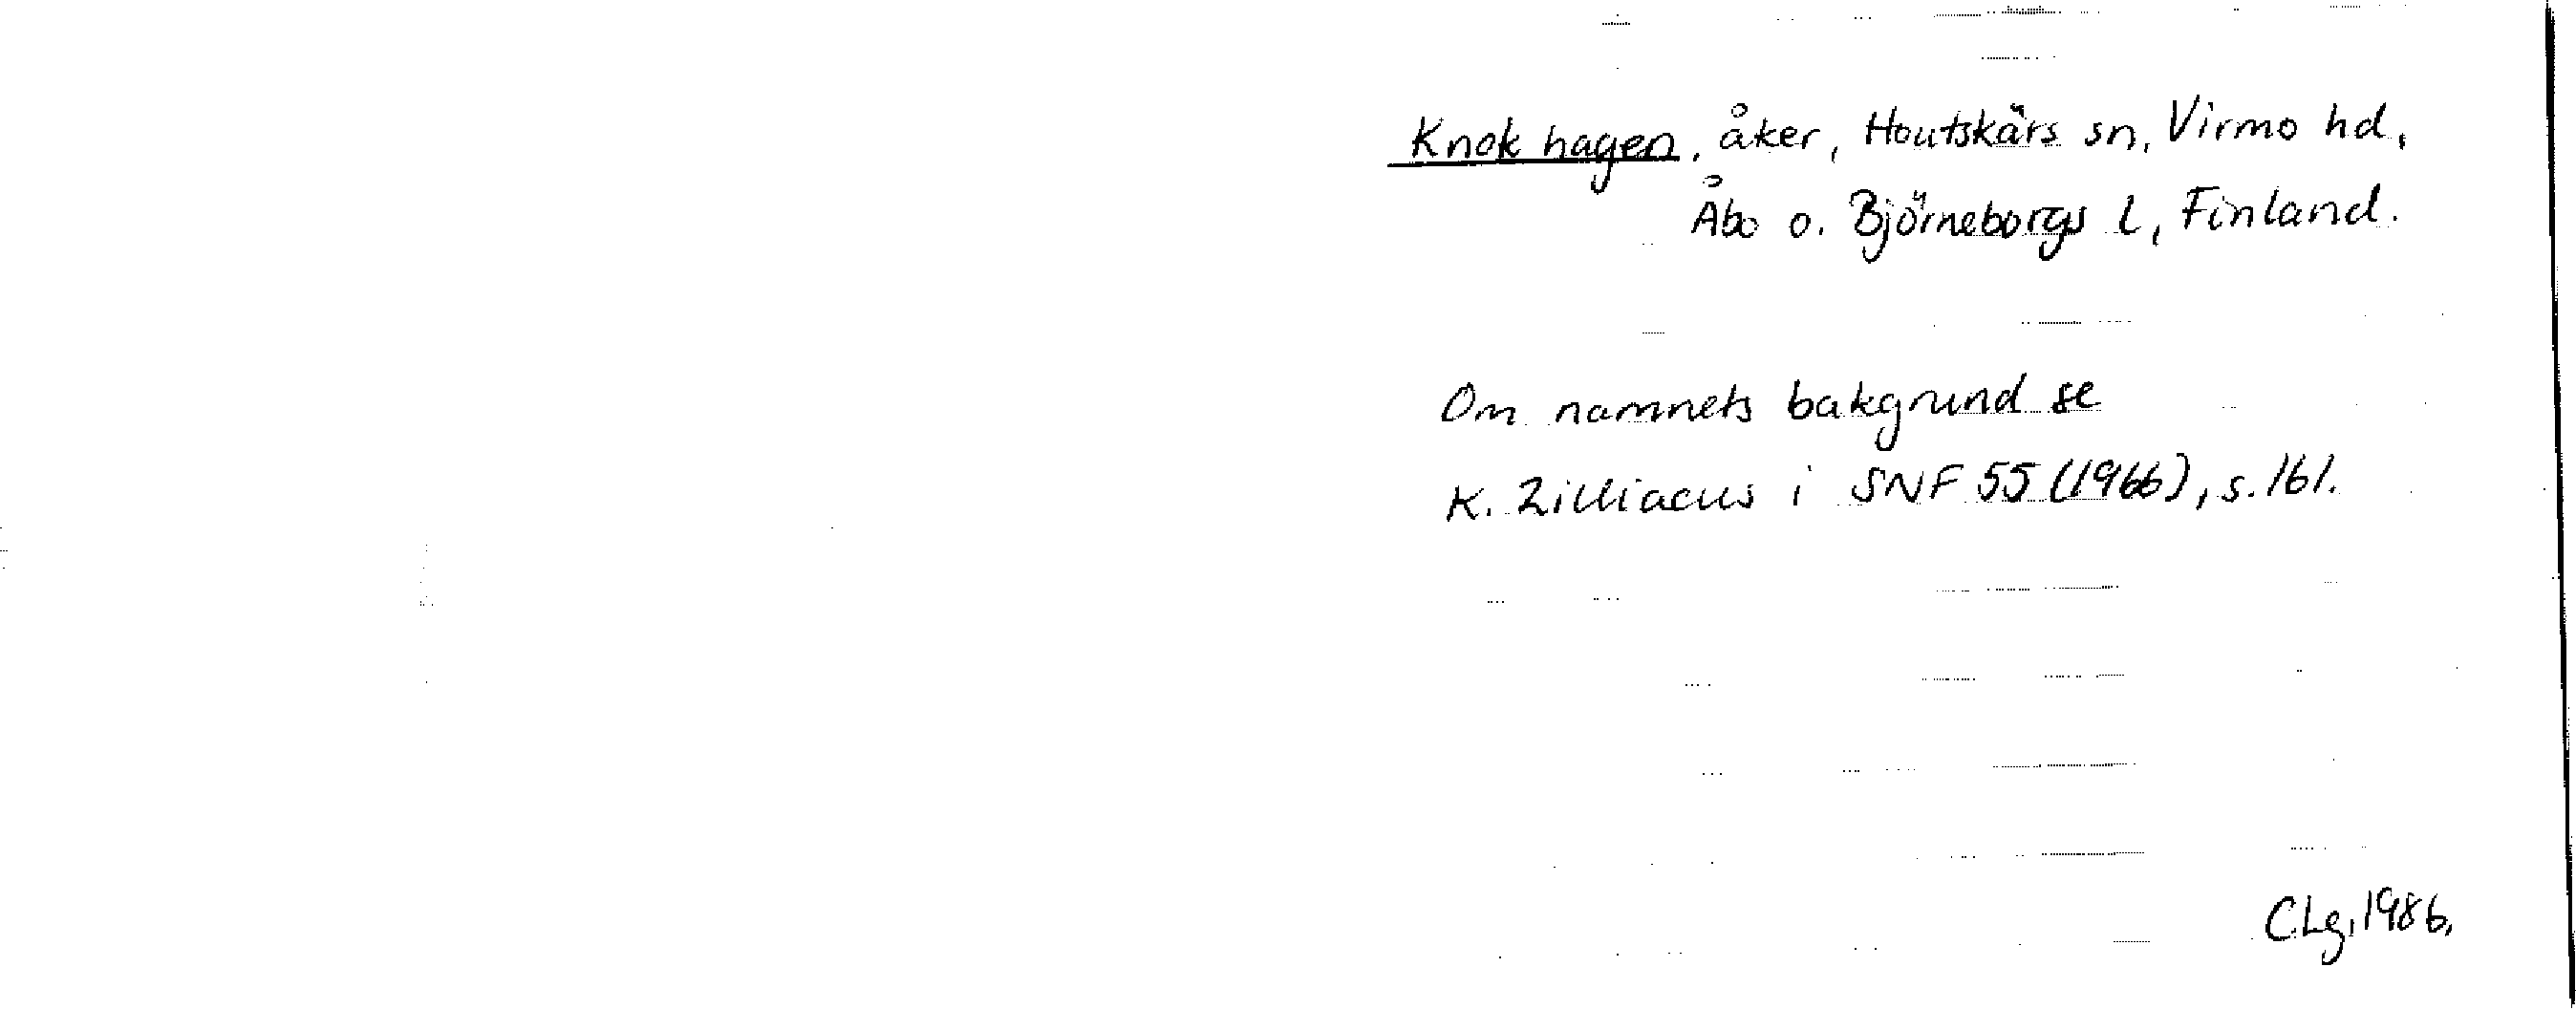 Knok hagen, åker, Houtskärs sn, Virmo hd,
Åbo o. Björneborgs l, Finland.
Om namnets bakgrund se
K. Zilliacus i SNF 55 (1966), s. 161.
CLg, 1986,